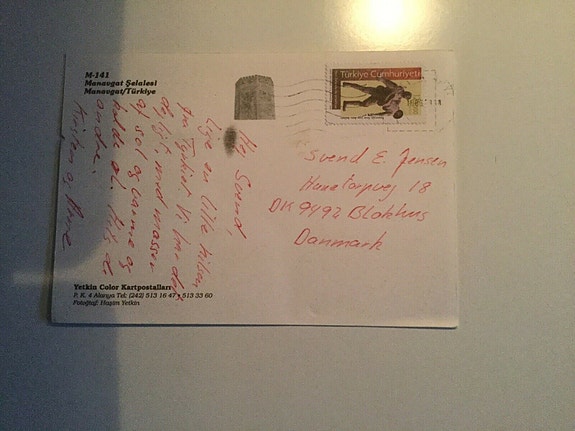 M-141
Manavgat Şelalesi
Manavgat/Türkiye
Türkiye Cumhuriyeti
Hej Svend
Lige en lille hilsen
fra Tyrkiet. Vi har det
dejligt med masser
af sol og varme og
holde øl. Hils de
andre.
Kirsten og
Svend E. Jensen
18
DK 9492 Blokhus
Danmark
Yetkin Color Kartpostalları
P. K. 4 Alanya Tel: (242) 513 16 47 - 513 33 60
Fotoğraf: Haşan Yetkin